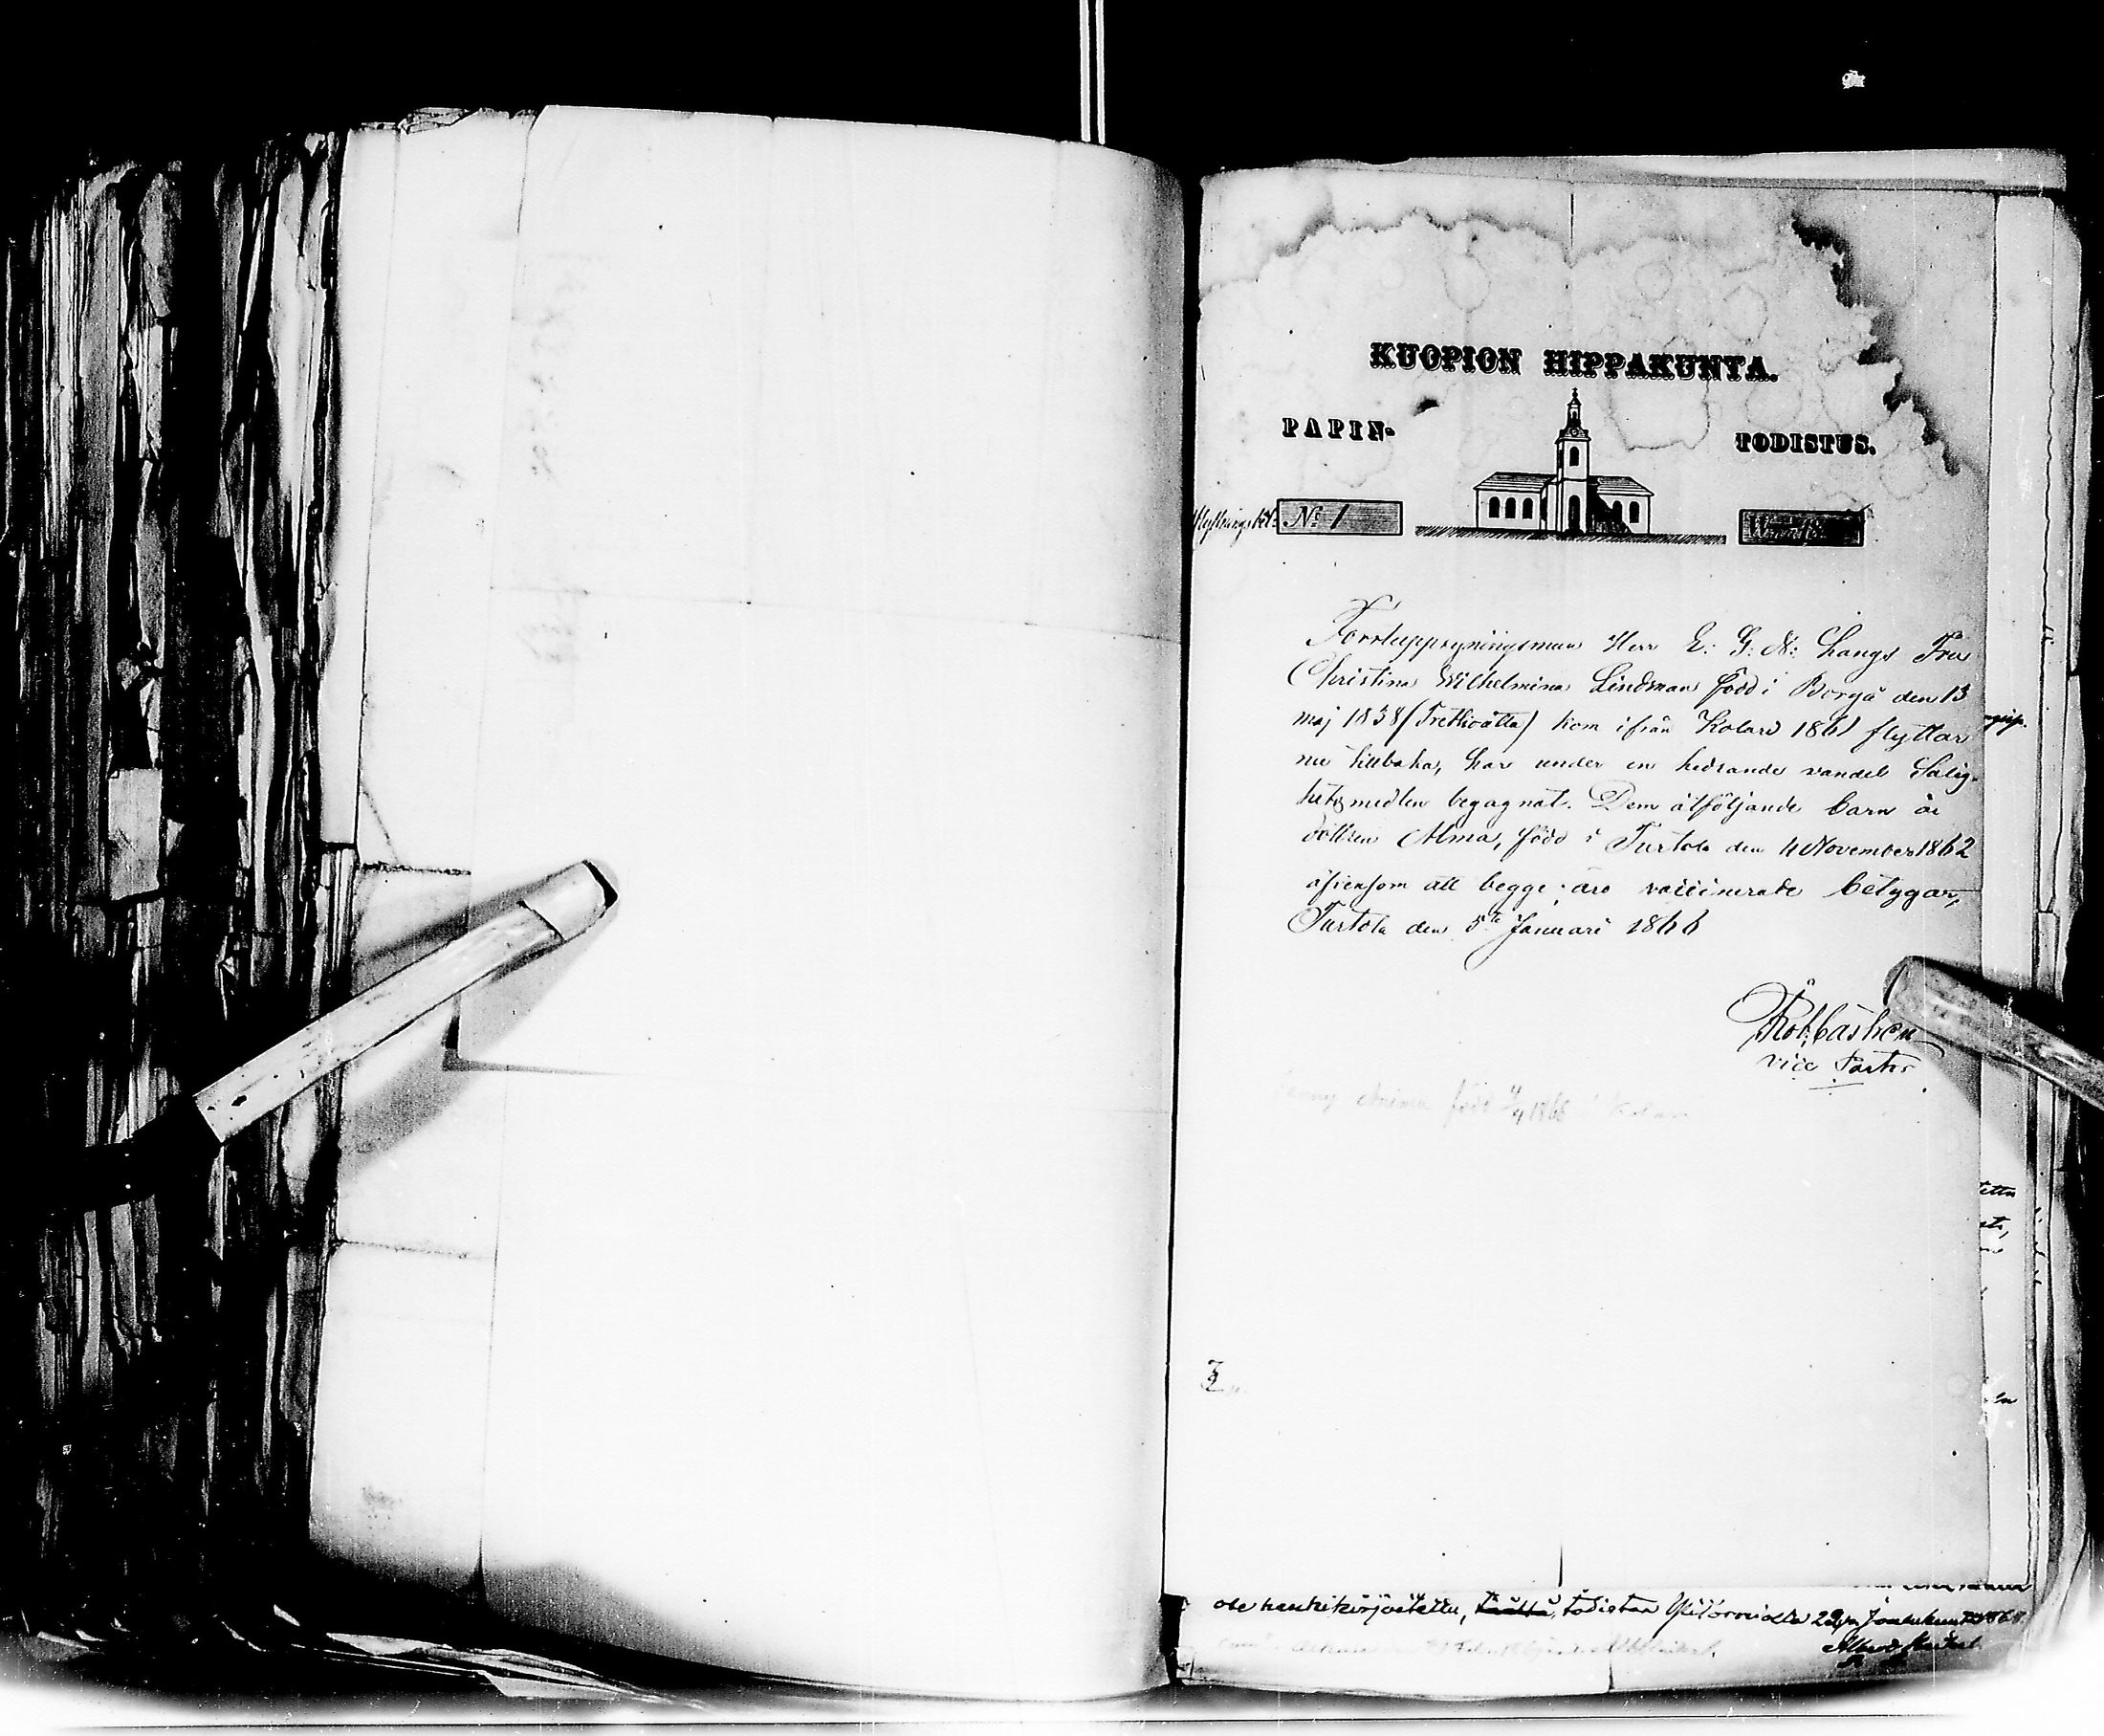 KUOPION HIPPAKUNTA.
PAPIN-
TODISTUS.
Flyttningsbet. No 1
Herr E: G: N: Langs Fru
Christina Wilhelmina Lindman född i Borgå den 13
maj 1838 (Trettioåtta) kom ifrån Kolari 1861 flyttar
nu tillbaka, har under en hedrande vandel Salig-
hetsmedlen begagnat. Dem åtföljande barn är
dottren Alma, född i Turtola den 4 November 1862
äfvensom att begge äro vaccinerade betygar,
Turtola den 5te Januari 1866
Rob. Castrén
vice Pastor
född 1866 i Kolari
ole henkikirjoitettu, täältä, todistaa Ylitorniolla